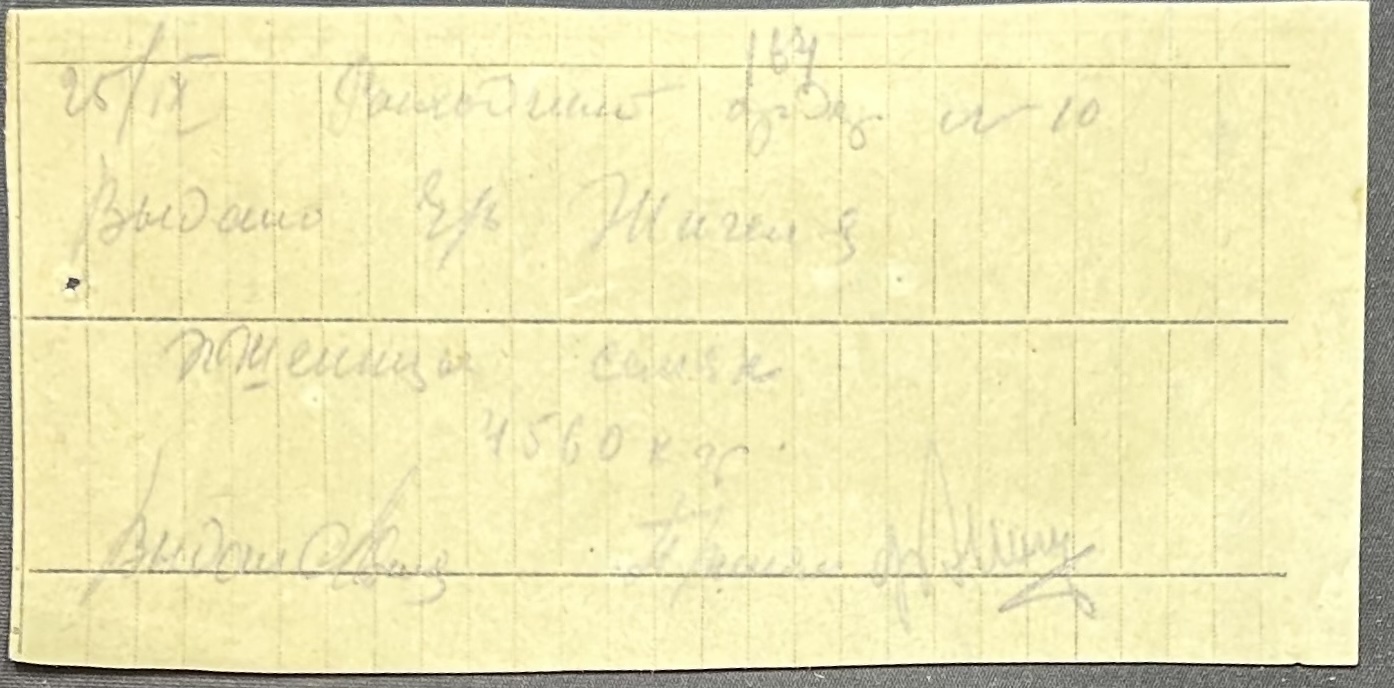 167
25/IX Расходный ордер № 10
Выдано Ч/з Жигеля
пшеницы семян
4560 кг.
Выдал
Принял